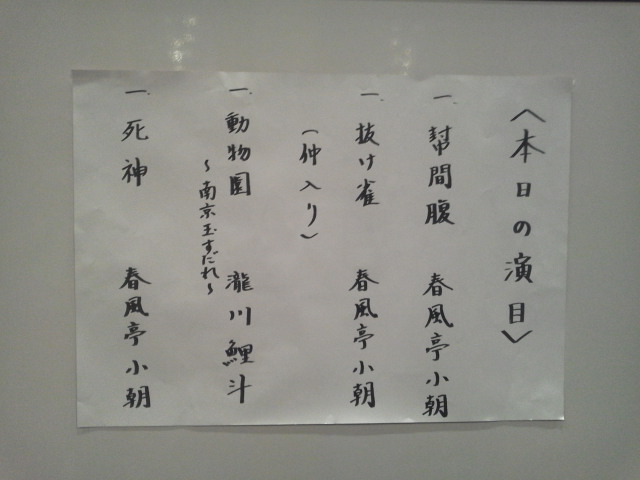 〈本日の演目〉
一、幇間腹 春風亭小朝
一、抜け雀 春風亭小朝
(仲入り)
一、動物園 瀧川鯉斗
～南京玉すだれ～
一、死神 春風亭小朝